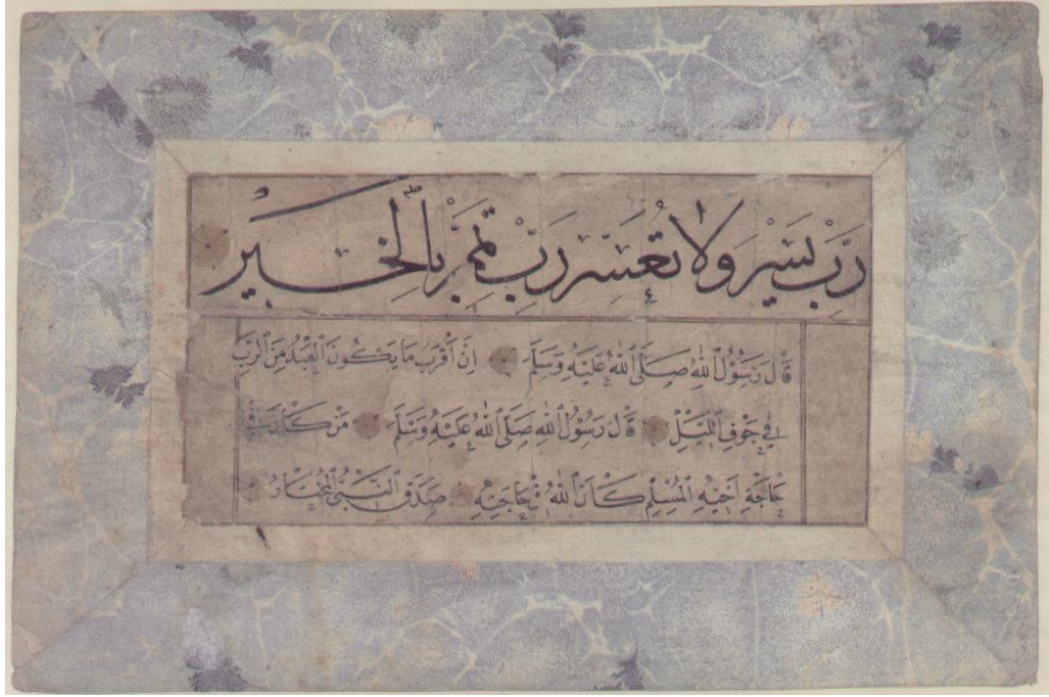 رَبِّ يَسِّرْ وَلَا تُعَسِّرْ رَبِّ تَمِّمْ بِالْخَيْرِ
قَالَ رَسُوْلُ اللهِ صَلَّى اللهُ عَلَيْهِ وَسَلَّمَ اِنَّ اَقْرَبَ مَا يَكُوْنُ الْعَبْدُ مِنَ الرَّبِّ
فِي جَوْفِ اللَّيْلِ قَالَ رَسُوْلُ اللهِ صَلَّى اللهُ عَلَيْهِ وَسَلَّمَ مَنْ كَانَ فِي
حَاجَةِ اَخِيْهِ الْمُسْلِمِ كَانَ اللهُ فِي حَاجَتِهِ صَدَقَ النَّبِيُّ الْمُخْتَارُ